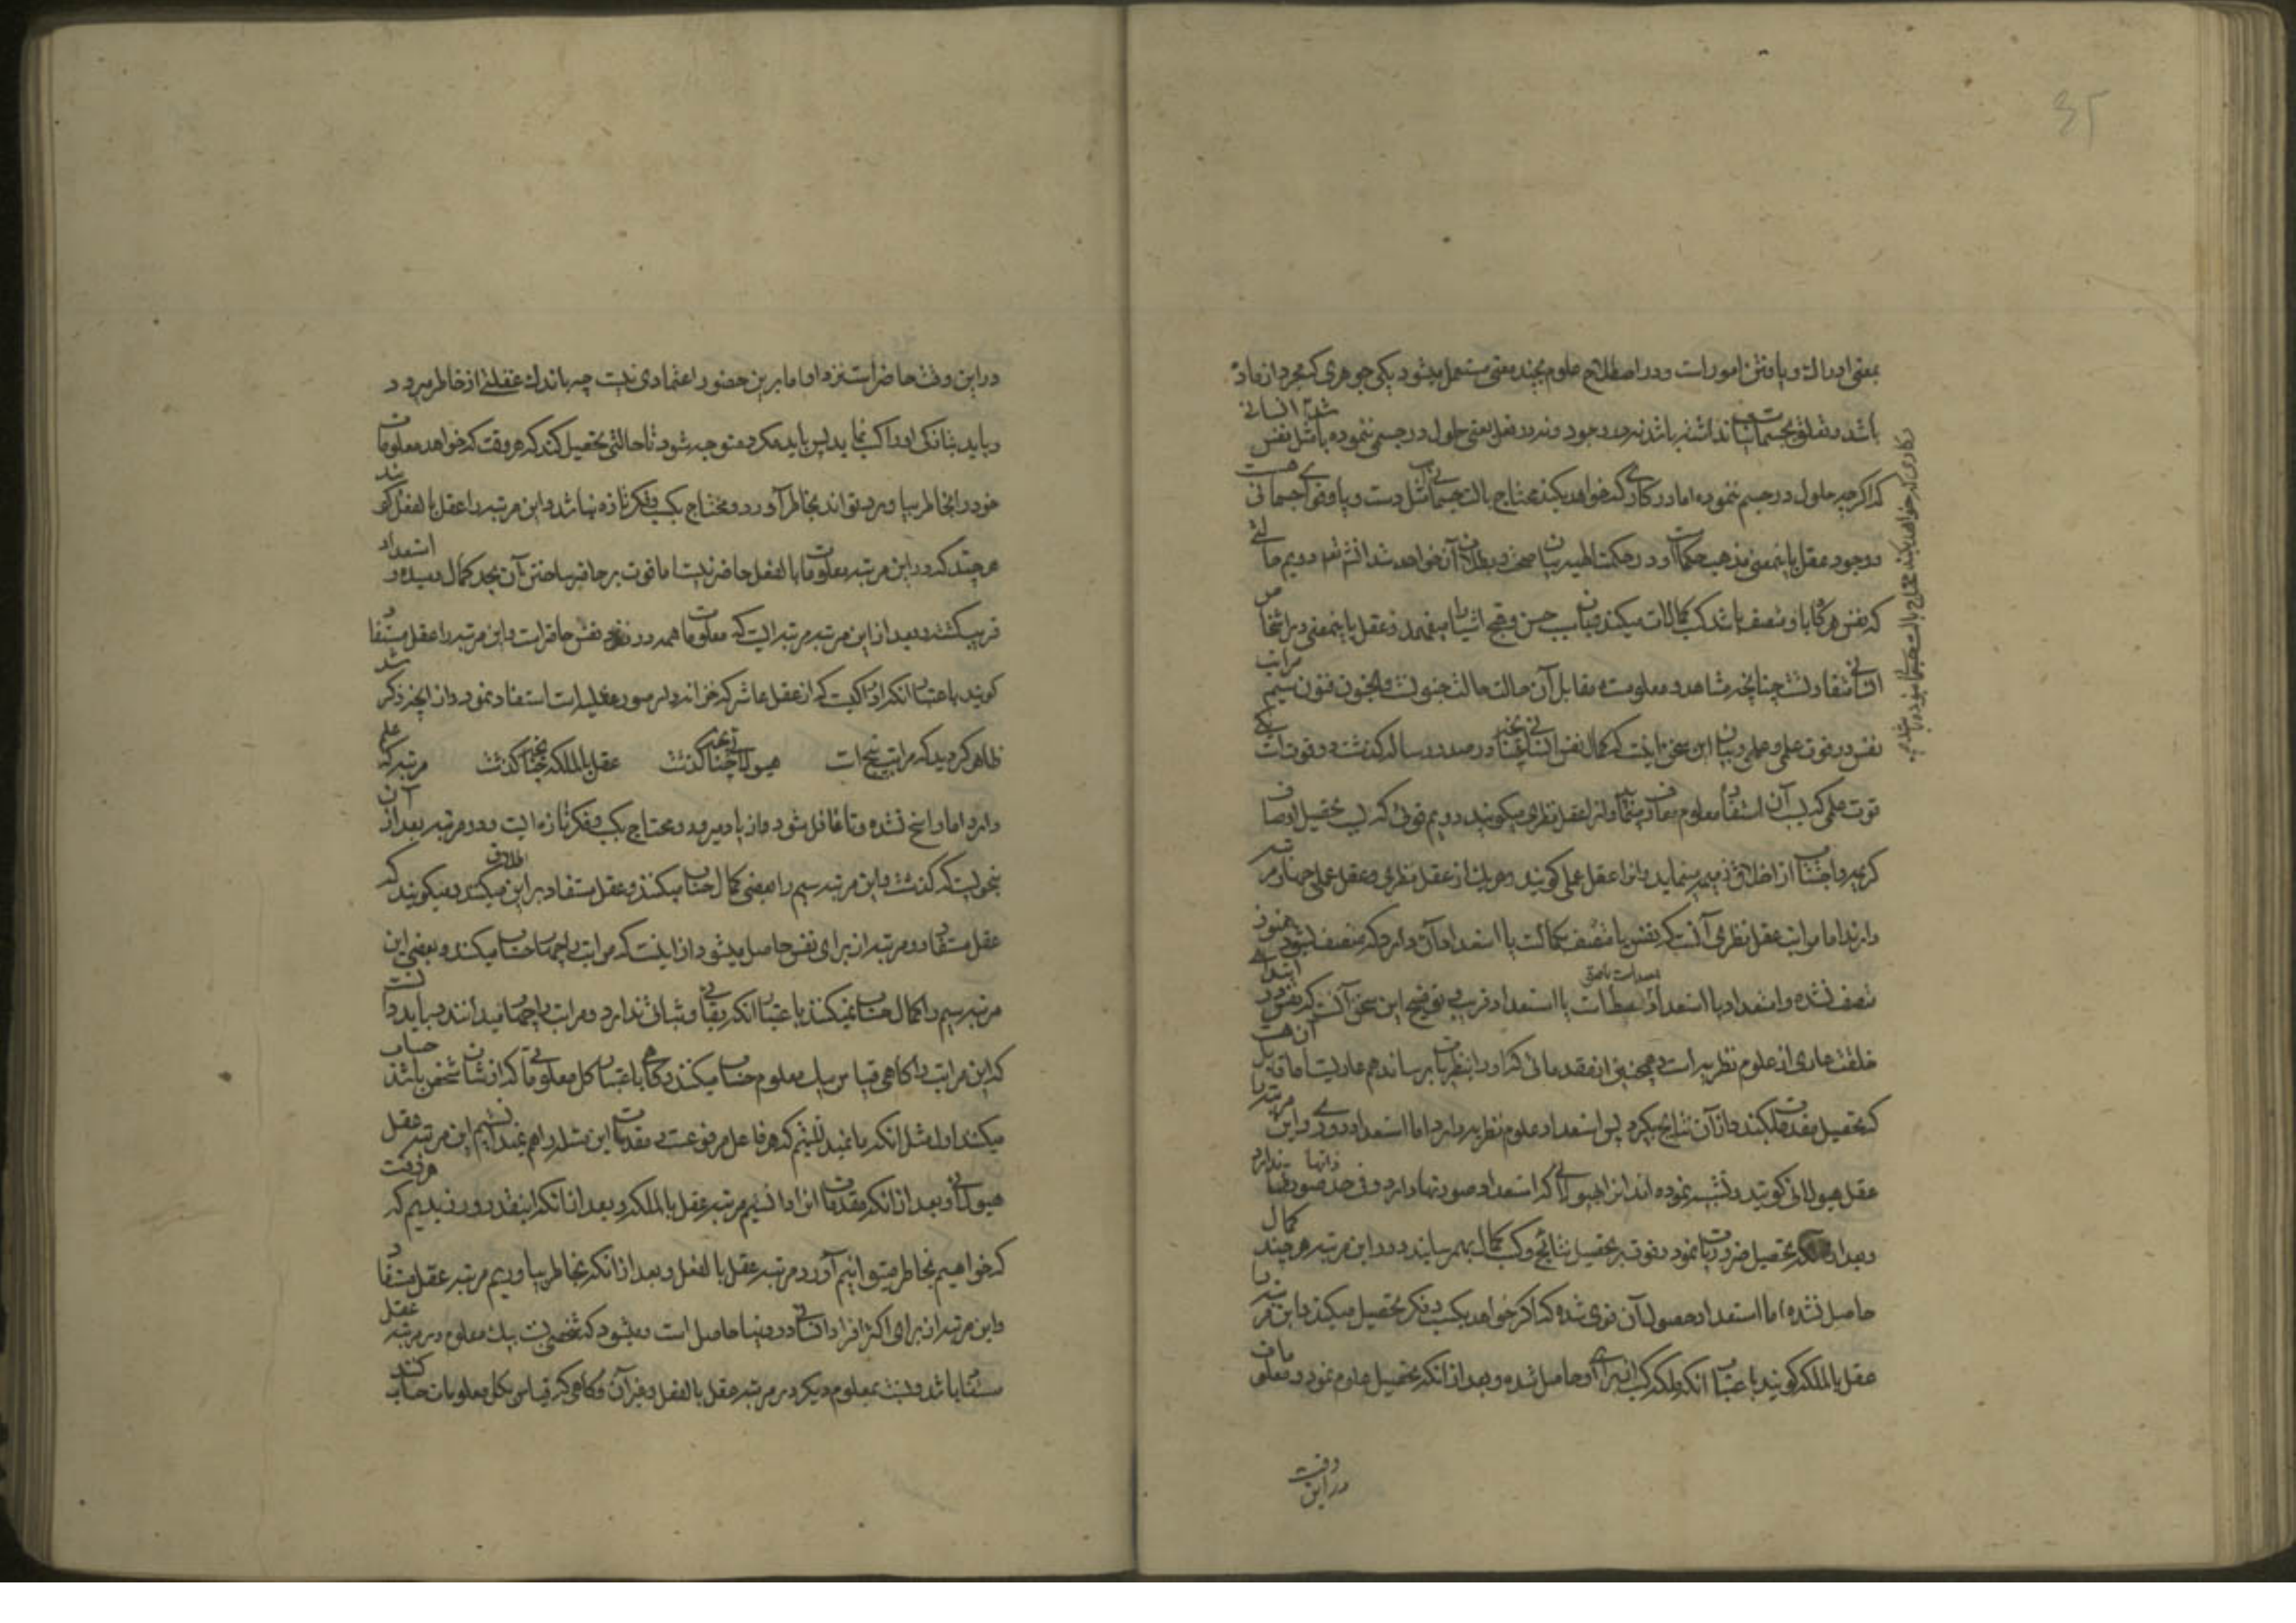 ۳۵
بمعنی ادراک و یافتن امور است و در اصطلاح علوم بچند معنی مستعمل میشود یکی جوهری که مجرد از ماده
باشد و تعلق بجسمانیات نداشته باشد نه در وجود و نه در فعل یعنی حلول در جسمی ننموده باشد مثل نفس انسانی
که اگرچه حلول در جسم ننموده اما در کاری که خواهد بکند محتاج بالت جسمانی است مثل دست و پا و قوای جسمانی هست
و وجود عقل باینمعنی مذهب حکما است و در حکمت الهیه بیان صحت و بطلان آن خواهد شد انشاء الله دویم حالتی
که نفس هرگاه باو متصف باشد کسب کمالات میکند و بآن حسن و قبح اشیا را میفهمد و عقل باینمعنی در اشخاص
انسانی متفاوتست چنانچه مشاهد و معلومست و مقابل آن حالت حالت جنونست و للجنون فنون سیم مراتب
نفس در قوت علمی و عملی و بیان این سخن اینست که کمال نفس انسانی چنانچه در صدر رساله گذشت دو قوت است یکی
قوت علمی که بسبب آن استفاده معلوم معارف مینماید و انرا عقل نظری میگویند دویم قوتی که بسبب تحصیل اوصاف
کریمه و اجتناب از اخلاق ذمیمه مینماید و انرا عقل عملی گویند و هریک از عقل نظری و عقل عملی چهار مرتبه
دارند اما مراتب عقل نظری آنست که نفس یا متصف بکمالست یا استعداد آن دارد که متصف بشود و هنوز
متصف نشده و استعداد یا استعداد بعید است یا استعداد قریب توضیح این سخن آنست که نفس در ابتدای
خلقت عاری از علوم نظریه است و همچنین از مقدماتی که او را بنظریات برساند هم عاریست اما قابل آن هست
که تحصیل مقدمات بکند و از آن نتایج بگیرد پس استعداد علوم نظریه دارد اما استعداد دوری و این مرتبه را
عقل هیولانی گویند و تشبیه نموده اند انرا بهیولای که استعداد صورتها دارد و فی حد ذاتها صورت ندارد
و بعد از آنکه تحصیل ضروریات نمود و قوت بر تحصیل نتایج و کسب کمال بهمرسانید و در این مرتبه هرچند کمال
حاصل نشده اما استعداد حصول آن قوی شده که اگر خواهد بکسب و فکر تحصیل میکند و این مرتبه را
عقل بالملکه گویند باعتبار آنکه ملکه کسب از برای او حاصل شده و بعد از آنکه تحصیل علوم نمود و معلومات
در این وقت
در کاری که خواهد بکند محتاج بالت جسمانی نبوده باشد
در این وقت حاضر است نزد او اما بر این حضور اعتمادی نیست چه باندک غفلتی از خاطر میرود و
و باید بتازگی او را کسب نماید پس باید مکرر متوجه شود تا حالتی تحصیل کند که هر وقت که خواهد معلومات
خود را بخاطر بیاورد تواند بخاطر آورد و محتاج بکسب و فکر تازه نباشد و این مرتبه را عقل بالفعل گویند
هرچند که در این مرتبه معلومات بالفعل حاضر نیست اما قوت بر حاضر ساختن آن بحد کمال رسیده و استعداد
قریب گشته و بعد از این مرتبه مرتبه ایست که معلومات همه در نزد نفس حاضر است و این مرتبه را عقل مستفاد
گویند باعتبار آنکه ادراکیست که از عقل عاشر که خزانه دار صور عقلیه است استفاده نموده و از آنچه ذکر شد
ظاهر گردید که مراتب پنج است هیولانی چنانچه گذشت عقل بالملکه چنانچه گذشت مرتبه که علم
دارد اما راسخ نشده و تا غافل شود از یاد میرود و محتاج بکسب و فکر تازه ایست و دو مرتبه بعد از آن
بنحویست که گذشت و این مرتبه سیم را بعضی کمال حساب میکنند و عقل مستفاد بر این اطلاق میکنند و میگویند که
عقل مستفاد دو مرتبه از برای نفس حاصل میشود از اینست که مراتب را چهار حساب میکنند و بعضی این
مرتبه سیم را کمال حساب نمیکنند باعتبار آنکه بقائی و ثباتی ندارد و مراتب را چهار میدانند و باید دانست
که این مراتب را گاهی قیاس بیک معلوم حساب میکنند و گاهی باعتبار کل معلوماتی که از شان شخص باشد حساب
میکنند اول مثل آنکه ما نمیدانستیم که هر فاعل مرفوعست و مقدمات این مسئله را هم نمیدانستیم این مرتبه عقل
هیولانی و بعد از آنکه مقدمات انرا دانستیم مرتبه عقل بالملکه و بعد از آنکه اینقدر ورزیدیم که هر وقت
که خواهیم بخاطر میتوانیم آورد مرتبه عقل بالفعل و بعد از آنکه بخاطر بیاوریم مرتبه عقل مستفاد
و این مرتبه از برای اکثر افراد انسانی در دنیا حاصل است و میشود که شخصی نسبت بیک معلوم در مرتبه عقل
مستفاد باشد و نسبت بمعلوم دیگر در مرتبه عقل بالفعل و غیر آن و گاهی که قیاس بکل معلومات حساب کنند